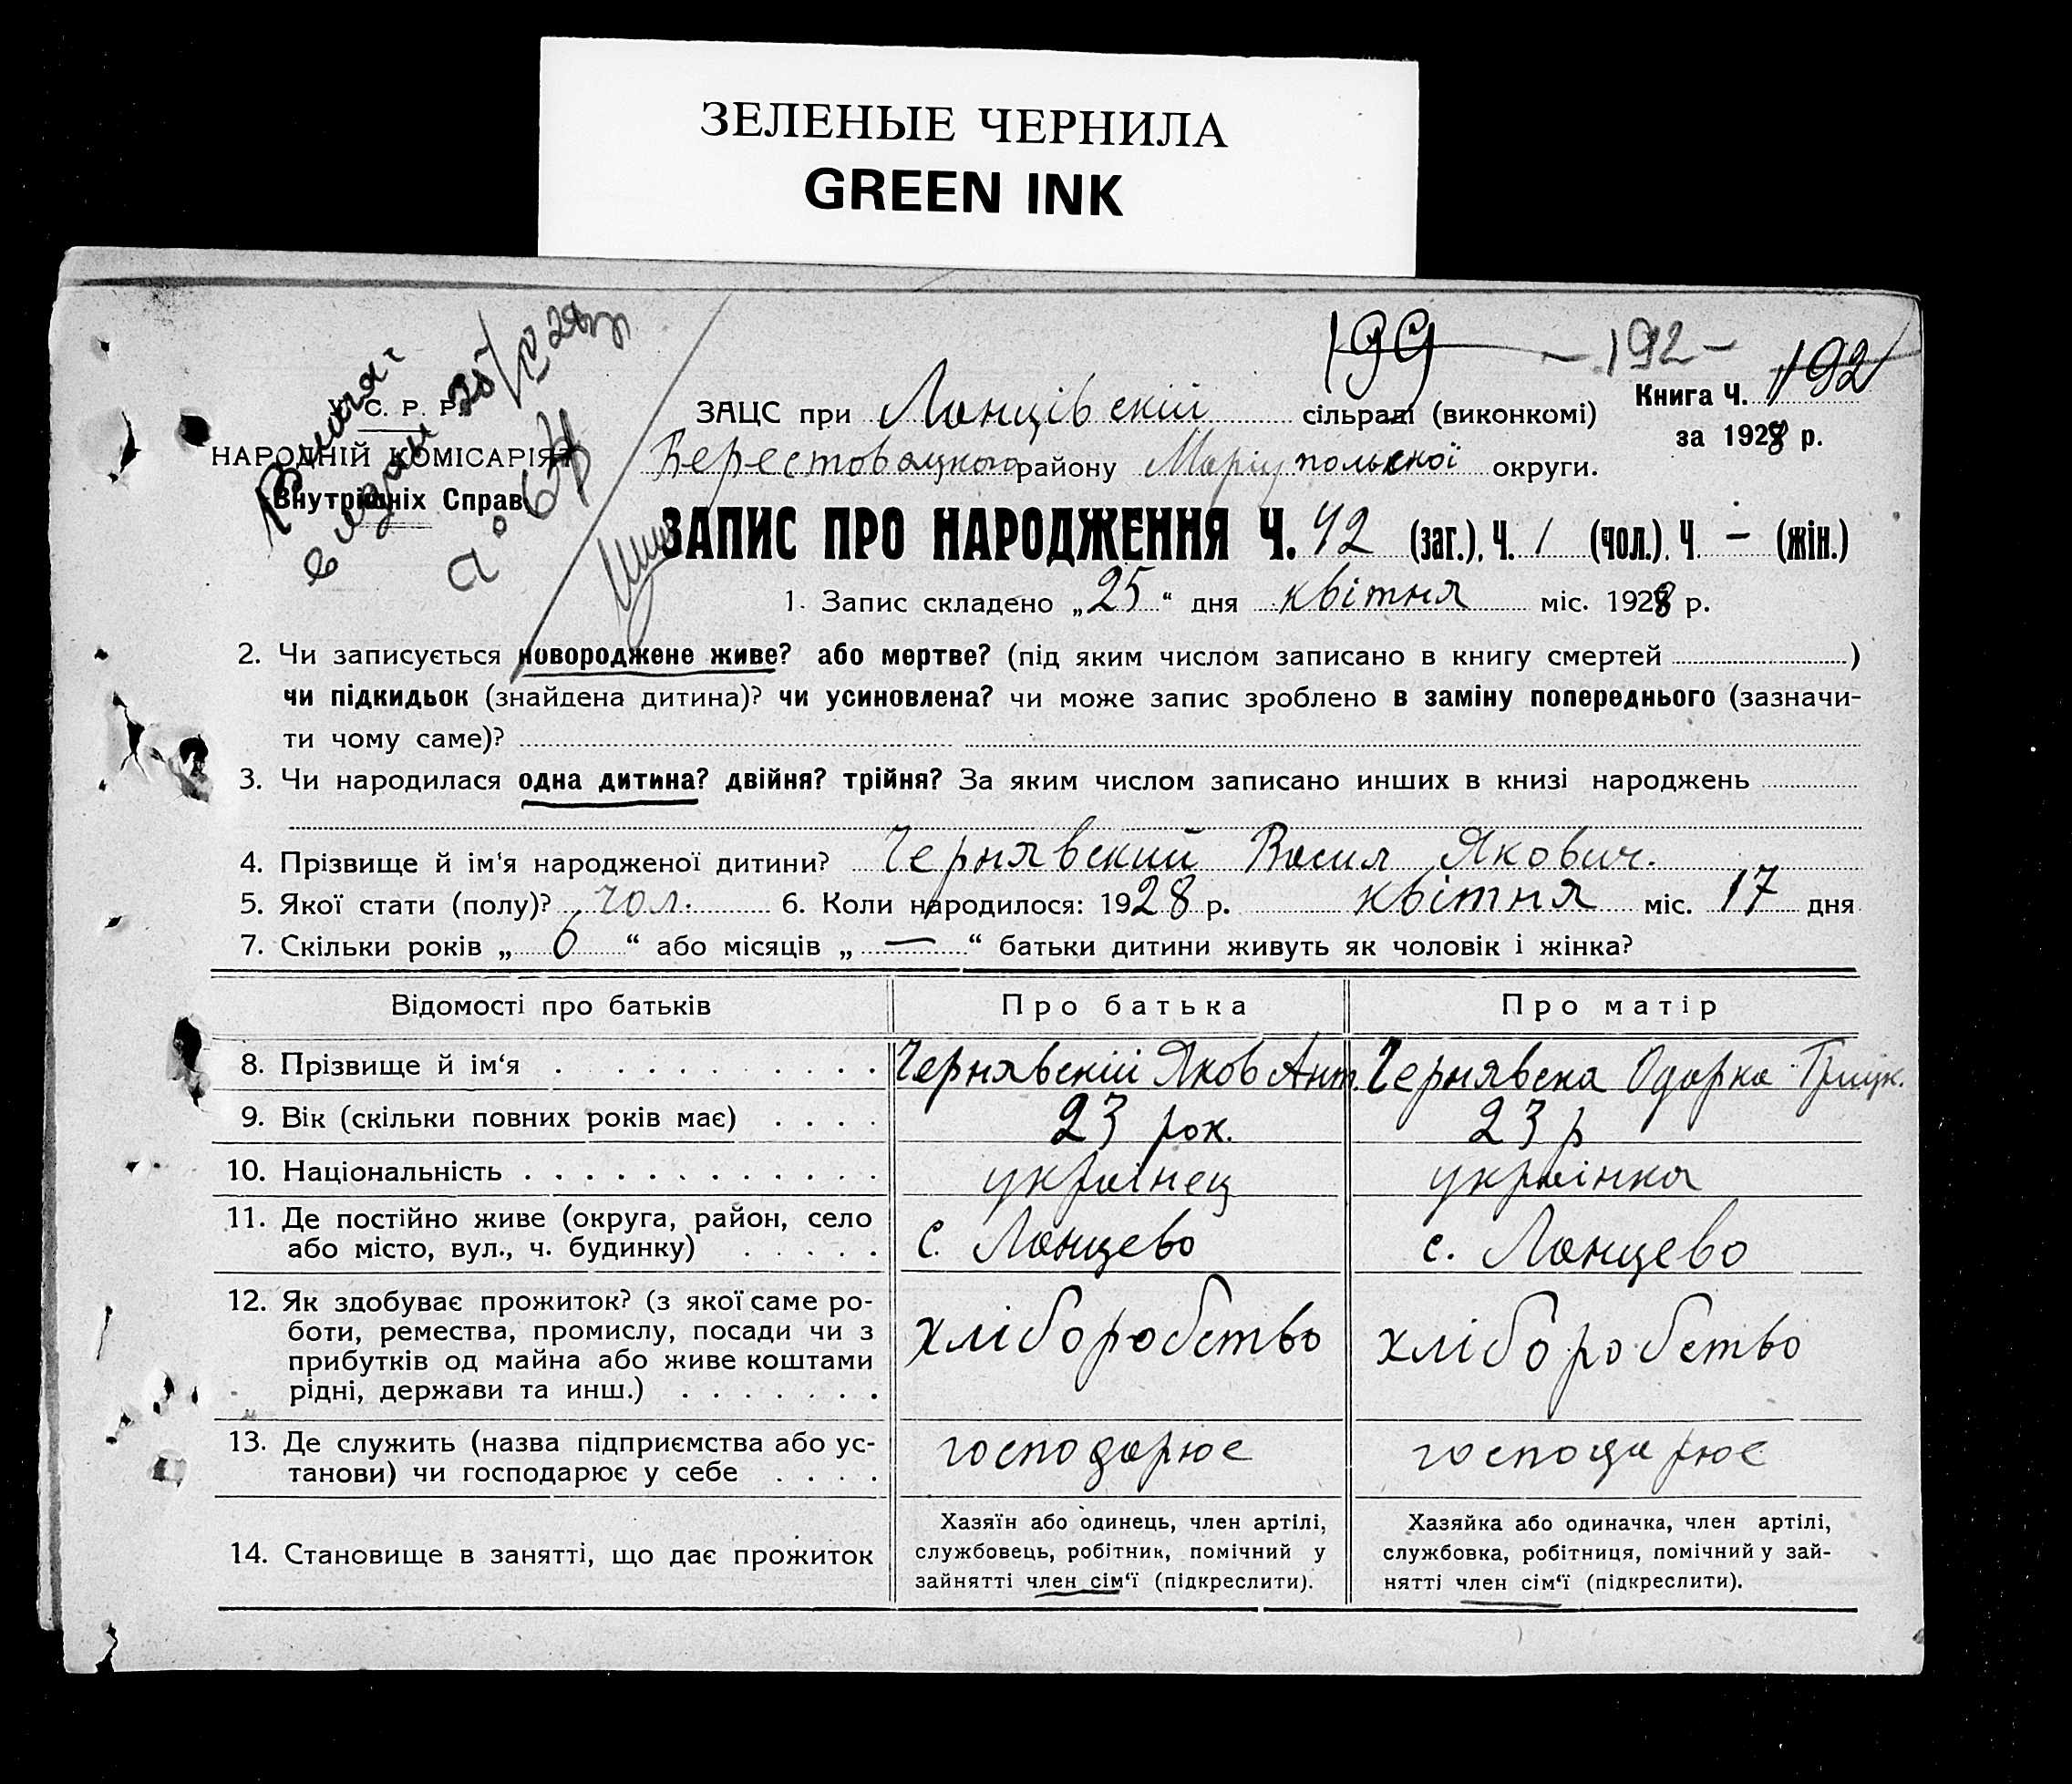 ЗЕЛЕНЫЕ ЧЕРНИЛА
GREEN INK
199 - 192 -
У. С. Р. Р.
НАРОДНІЙ КОМІСАРІЯТ
Внутрішніх Справ
25/IV 28 р
ЗАЦС при Ланцівскій сільраді (виконкомі)
Книга Ч. 192
за 1928 р.
Берестовацкого району Маріупольскої округи.
ЗАПИС ПРО НАРОДЖЕННЯ Ч. 42 (заг.), Ч. 1 (чол.), Ч. — (жін.)
1. Запис складено „25“ дня квітня міс. 1928 р.
2. Чи записується новороджене живе? або мертве? (під яким числом записано в книгу смертей )
чи підкидьок (знайдена дитина)? чи усиновлена? чи може запис зроблено в заміну попереднього (зазначи-
ти чому саме)?
3. Чи народилася одна дитина? двійня? трійня? За яким числом записано инших в книзі народжень
4. Прізвище й ім‘я народженої дитини? Чернявский Васил Якович.
5. Якої стати (полу)? чол. 6. Коли народилося: 1928 р. квітня міс. 17 дня
7. Скільки років „ 6 “ або місяців „ — “ батьки дитини живуть як чоловік і жінка?
Відомості про батьків Про батька Про матір
8. Прізвище й ім‘я Чернявскій Яков Ант. Чернявска Одарка Грицк.
9. Вік (скільки повних років має) 23 рок. 23 р
10. Національність українец українка
11. Де постійно живе (округа, район, село
або місто, вул., ч. будинку) с. Ланцево с. Ланцево
12. Як здобуває прожиток? (з якої саме ро-
боти, ремества, промислу, посади чи з
прибутків од майна або живе коштами
рідні, держави та инш.) хліборобство хліборобство
13. Де служить (назва підприємства або ус-
танови) чи господарює у себе господарює господарює
14. Становище в занятті, що дає прожиток
Хазяїн або одинець, член артілі,
службовець, робітник, помічний у
зайнятті член сім‘ї (підкреслити).
Хазяйка або одиначка, член артілі,
службовка, робітниця, помічний у зай-
нятті член сім‘ї (підкреслити).